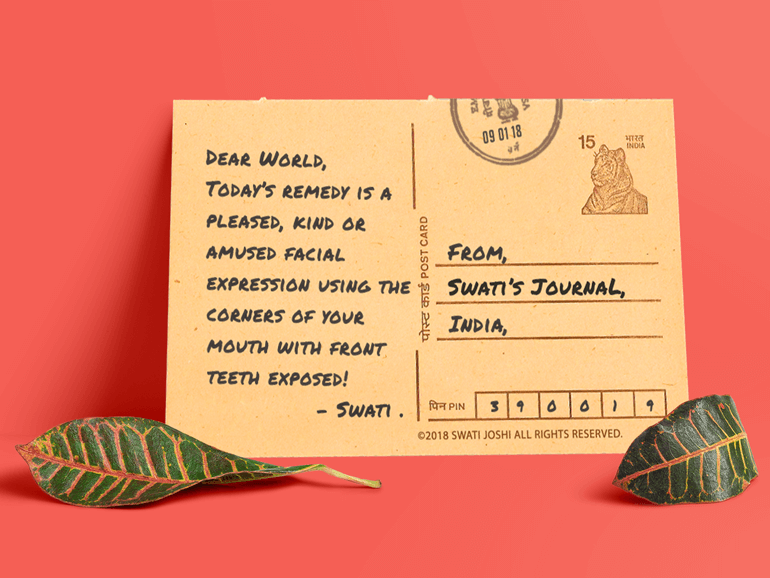 DEAR WORLD,
TODAY'S REMEDY IS A
PLEASED, KIND OR
AMUSED FACIAL
EXPRESSION USING THE
CORNERS OF YOUR
MOUTH WITH FRONT
TEETH EXPOSED!
- SWATI .
पोस्ट कार्ड POST CARD
09 01 18
15
भारत
INDIA
FROM,
SWATI'S JOURNAL,
INDIA,
पिन PIN 3 9 0 0 1 9
©2018 SWATI JOSHI ALL RIGHTS RESERVED.